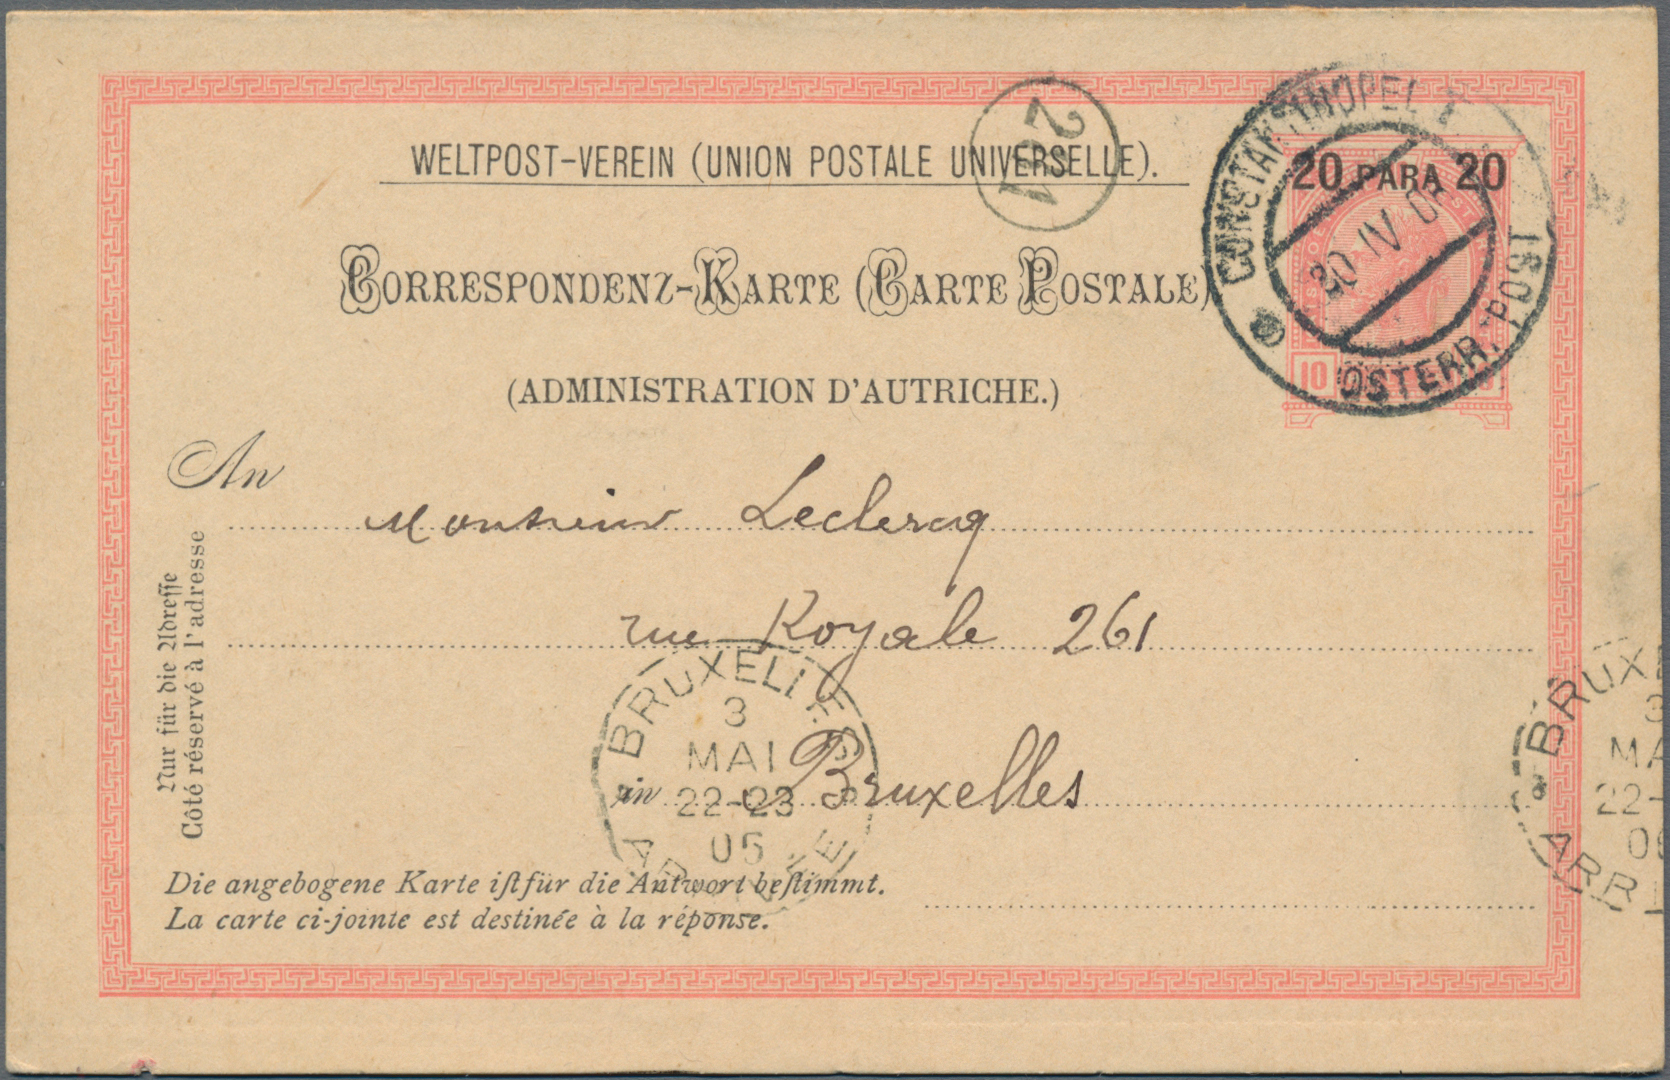 WELTPOST-VEREIN (UNION POSTALE UNIVERSELLE).
CORRESPONDENZ-KARTE (CARTE POSTALE)
(ADMINISTRATION D'AUTRICHE.)
201
CONSTANTINOPEL I
20 PARA 20
30 IV 05
10
ÖSTERR. POST
An
Monsieur Leclercq
rue Royale 261
in Bruxelles
Nur für die Adresse
Côté réservé à l'adresse
BRUXELLES
3
MAI
22-23
05
ARRIVEE
BRUXE
3
MA
22-
0
ARRI
Die angebogene Karte ist für die Antwort bestimmt.
La carte ci-jointe est destinée à la réponse.